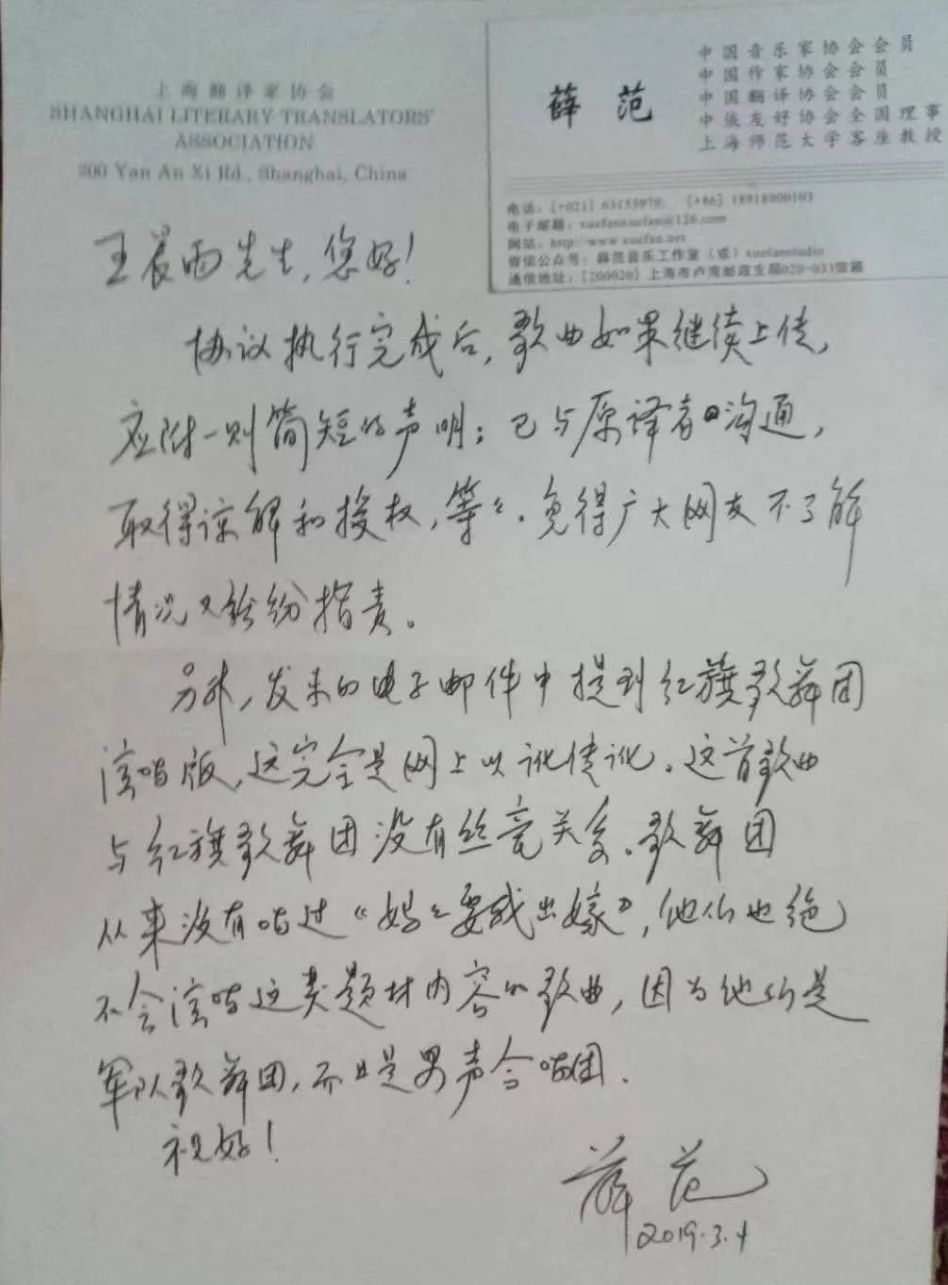 上海翻译家协会
SHANGHAI LITERARY TRANSLATORS'
ASSOCIATION
200 Yan An Xi Rd., Shanghai, China
薛范
中国音乐家协会会员
中国作家协会会员
中国翻译协会会员
中俄友好协会全国理事
上海师范大学客座教授
电话：[+021] [+86]
电子邮箱：xuefanxuefan@126.com
网站：http://www.xuefan.net
微信公众号：薛范音乐工作室（或）xuefanstudio
通信地址：[200020] 上海市卢湾邮政支局020-033信箱
王晨雨先生，您好！
协议执行完成后，歌曲如果继续上传，
应附一则简短的声明：已与原译者沟通，
取得谅解和授权，等々。免得广大网友不了解
情况又纷纷指责。
另外，发来的电子邮件中提到红旗歌舞团
演唱版，这完全是网上以讹传讹。这首歌曲
与红旗歌舞团没有丝毫关系。歌舞团
从来没有唱过《妈々要我出嫁》，他们也绝
不会演唱这类题材内容的歌曲，因为他们是
军队歌舞团，而且是男声合唱团．
祝好！
薛范
2019.3.4